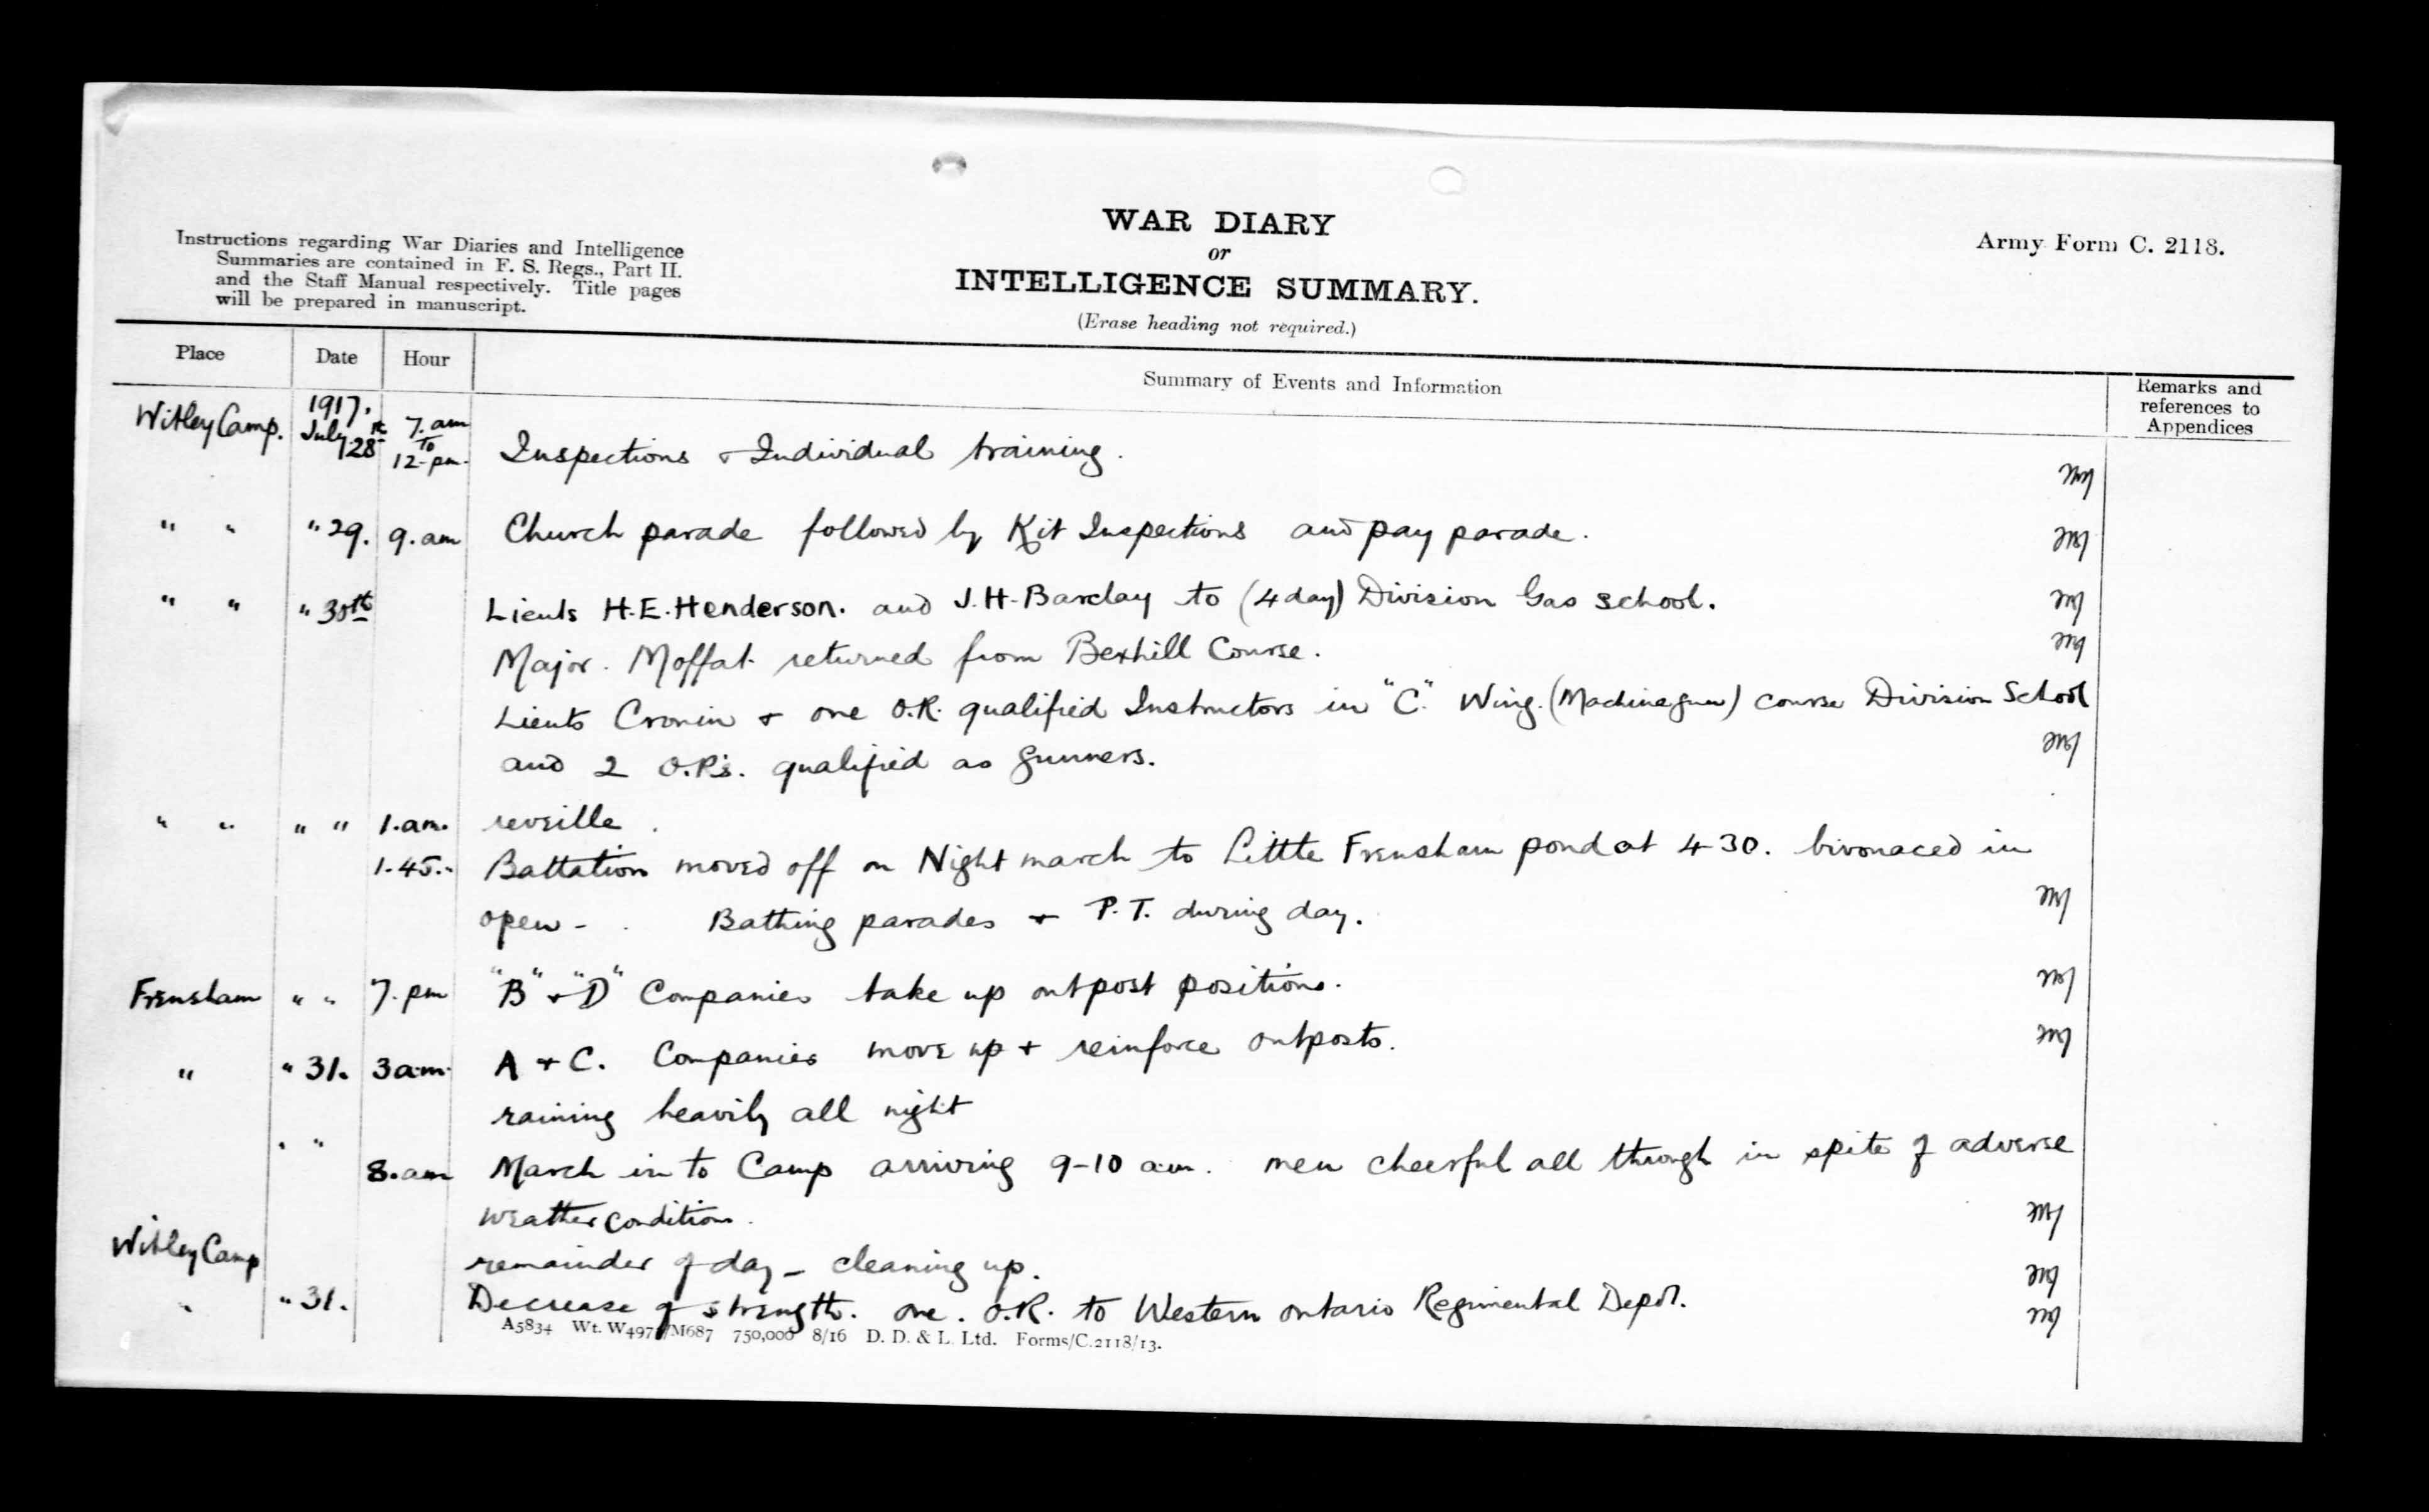 WAR DIARY
or
INTELLIGENCE SUMMARY.
(Erase heading not required.)
Instructions regarding War Diaries and Intelligence
Summaries are contained in F. S. Regs., Part II.
and the Staff Manual respectively. Title pages
will be prepared in manuscript.
Army Form C. 2118.
Place Date Hour Summary of Events and Information Remarks and
references to
Appendices
Witley Camp. 1917. July 28th 7. am to 12-pm. Inspections + Individual training.
" " " 29. 9. am Church parade followed by Kit Inspections and pay parade.
" " " 30th Lieuts H.E. Henderson. and J.H. Barclay to (4 day) Division Gas school.
Major. Moffat returned from Bexhill Course.
Lieuts Cronin + one O.R. qualified Instructors in "C" Wing. (Machine gun) course Division School
and 2 O.R's. qualified as gunners.
" " " " 1. am. reveille.
1.45. " Battation moved off on Night march to Little Frensham pond at 4-30. bivonaced in
open - Bathing parades + P.T. during day.
Frensham " " 7. pm "B" + "D" Companies take up outpost positions.
" " 31. 3 am. A + C. Companies move up + reinforce outposts.
raining heavily all night
" "
8. am March in to Camp arriving 9-10 am. men cheerful all through in spite of adverse
weather condition.
Witley Camp remainder of day - cleaning up.
" " 31. Decrease of strength. one. O.R. to Western Ontario Regimental Depot.
A5834 Wt. W4973/M687 750,000 8/16 D. D. & L. Ltd. Forms/C.2118/13.